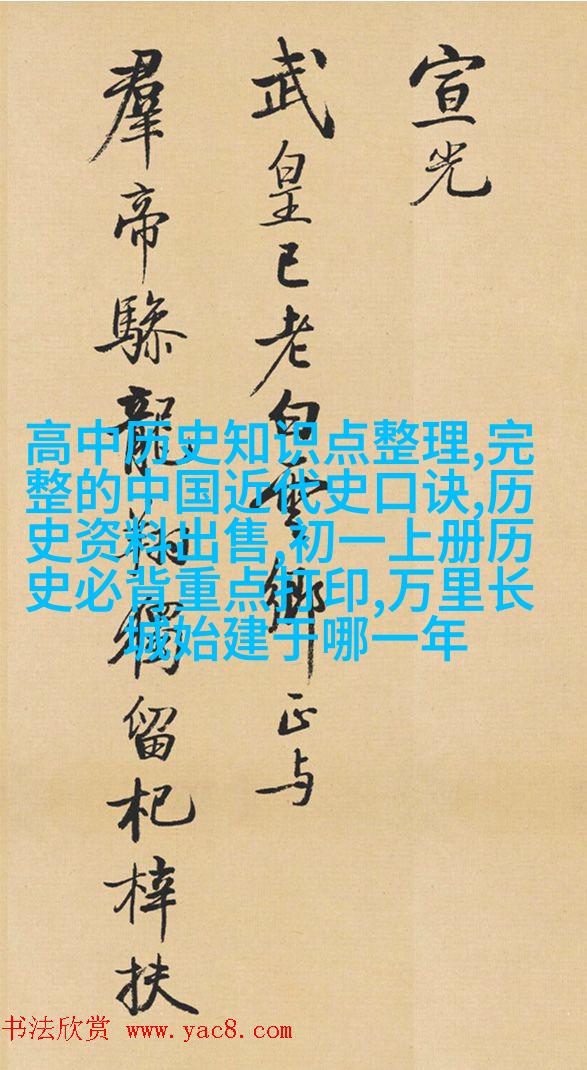 宣光
武皇已老白雲鄉正与
羣帝驂龍翔獨留杞梓扶
高中历史知识点整理,完
整的中国近代史口诀,历
史资料出售,初一上册历
史必背重点打印,万里长
城始建于哪一年
书法欣赏 www.yac8.com